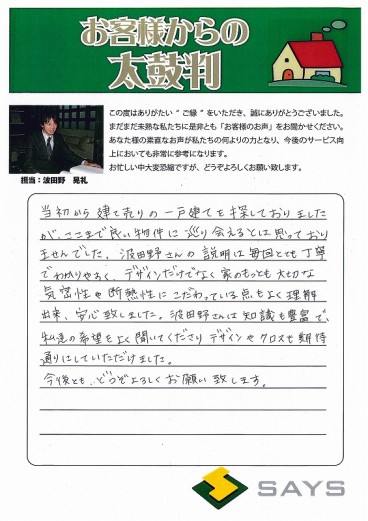 お客様からの
太鼓判
この度はありがたい“ご縁”をいただき、誠にありがとうございました。
まだまだ未熟な私たちに是非とも「お客様のお声」をお聞かせください。
あなた様の素直なお声が私たちの何よりの力となり、今後のサービス向
上においても非常に参考になります。
お忙しい中大変恐縮ですが、どうぞよろしくお願い致します。
担当：波田野 晃礼
当初から建て売りの一戸建てを探しておりました
が、ここまで良い物件に巡り会えるとは思っており
ませんでした。波田野さんの説明は毎回とても丁寧
でわかりやすく、デザインだけでなく家のもっとも大切な
気密性や断熱性にこだわっている点もよく理解
出来、安心致しました。波田野さんは知識も豊富で、
私達の希望をよく聞いてくださりデザインやクロスも期待
通りにしていただけました。
今後とも、どうぞよろしくお願い致します。
SAYS